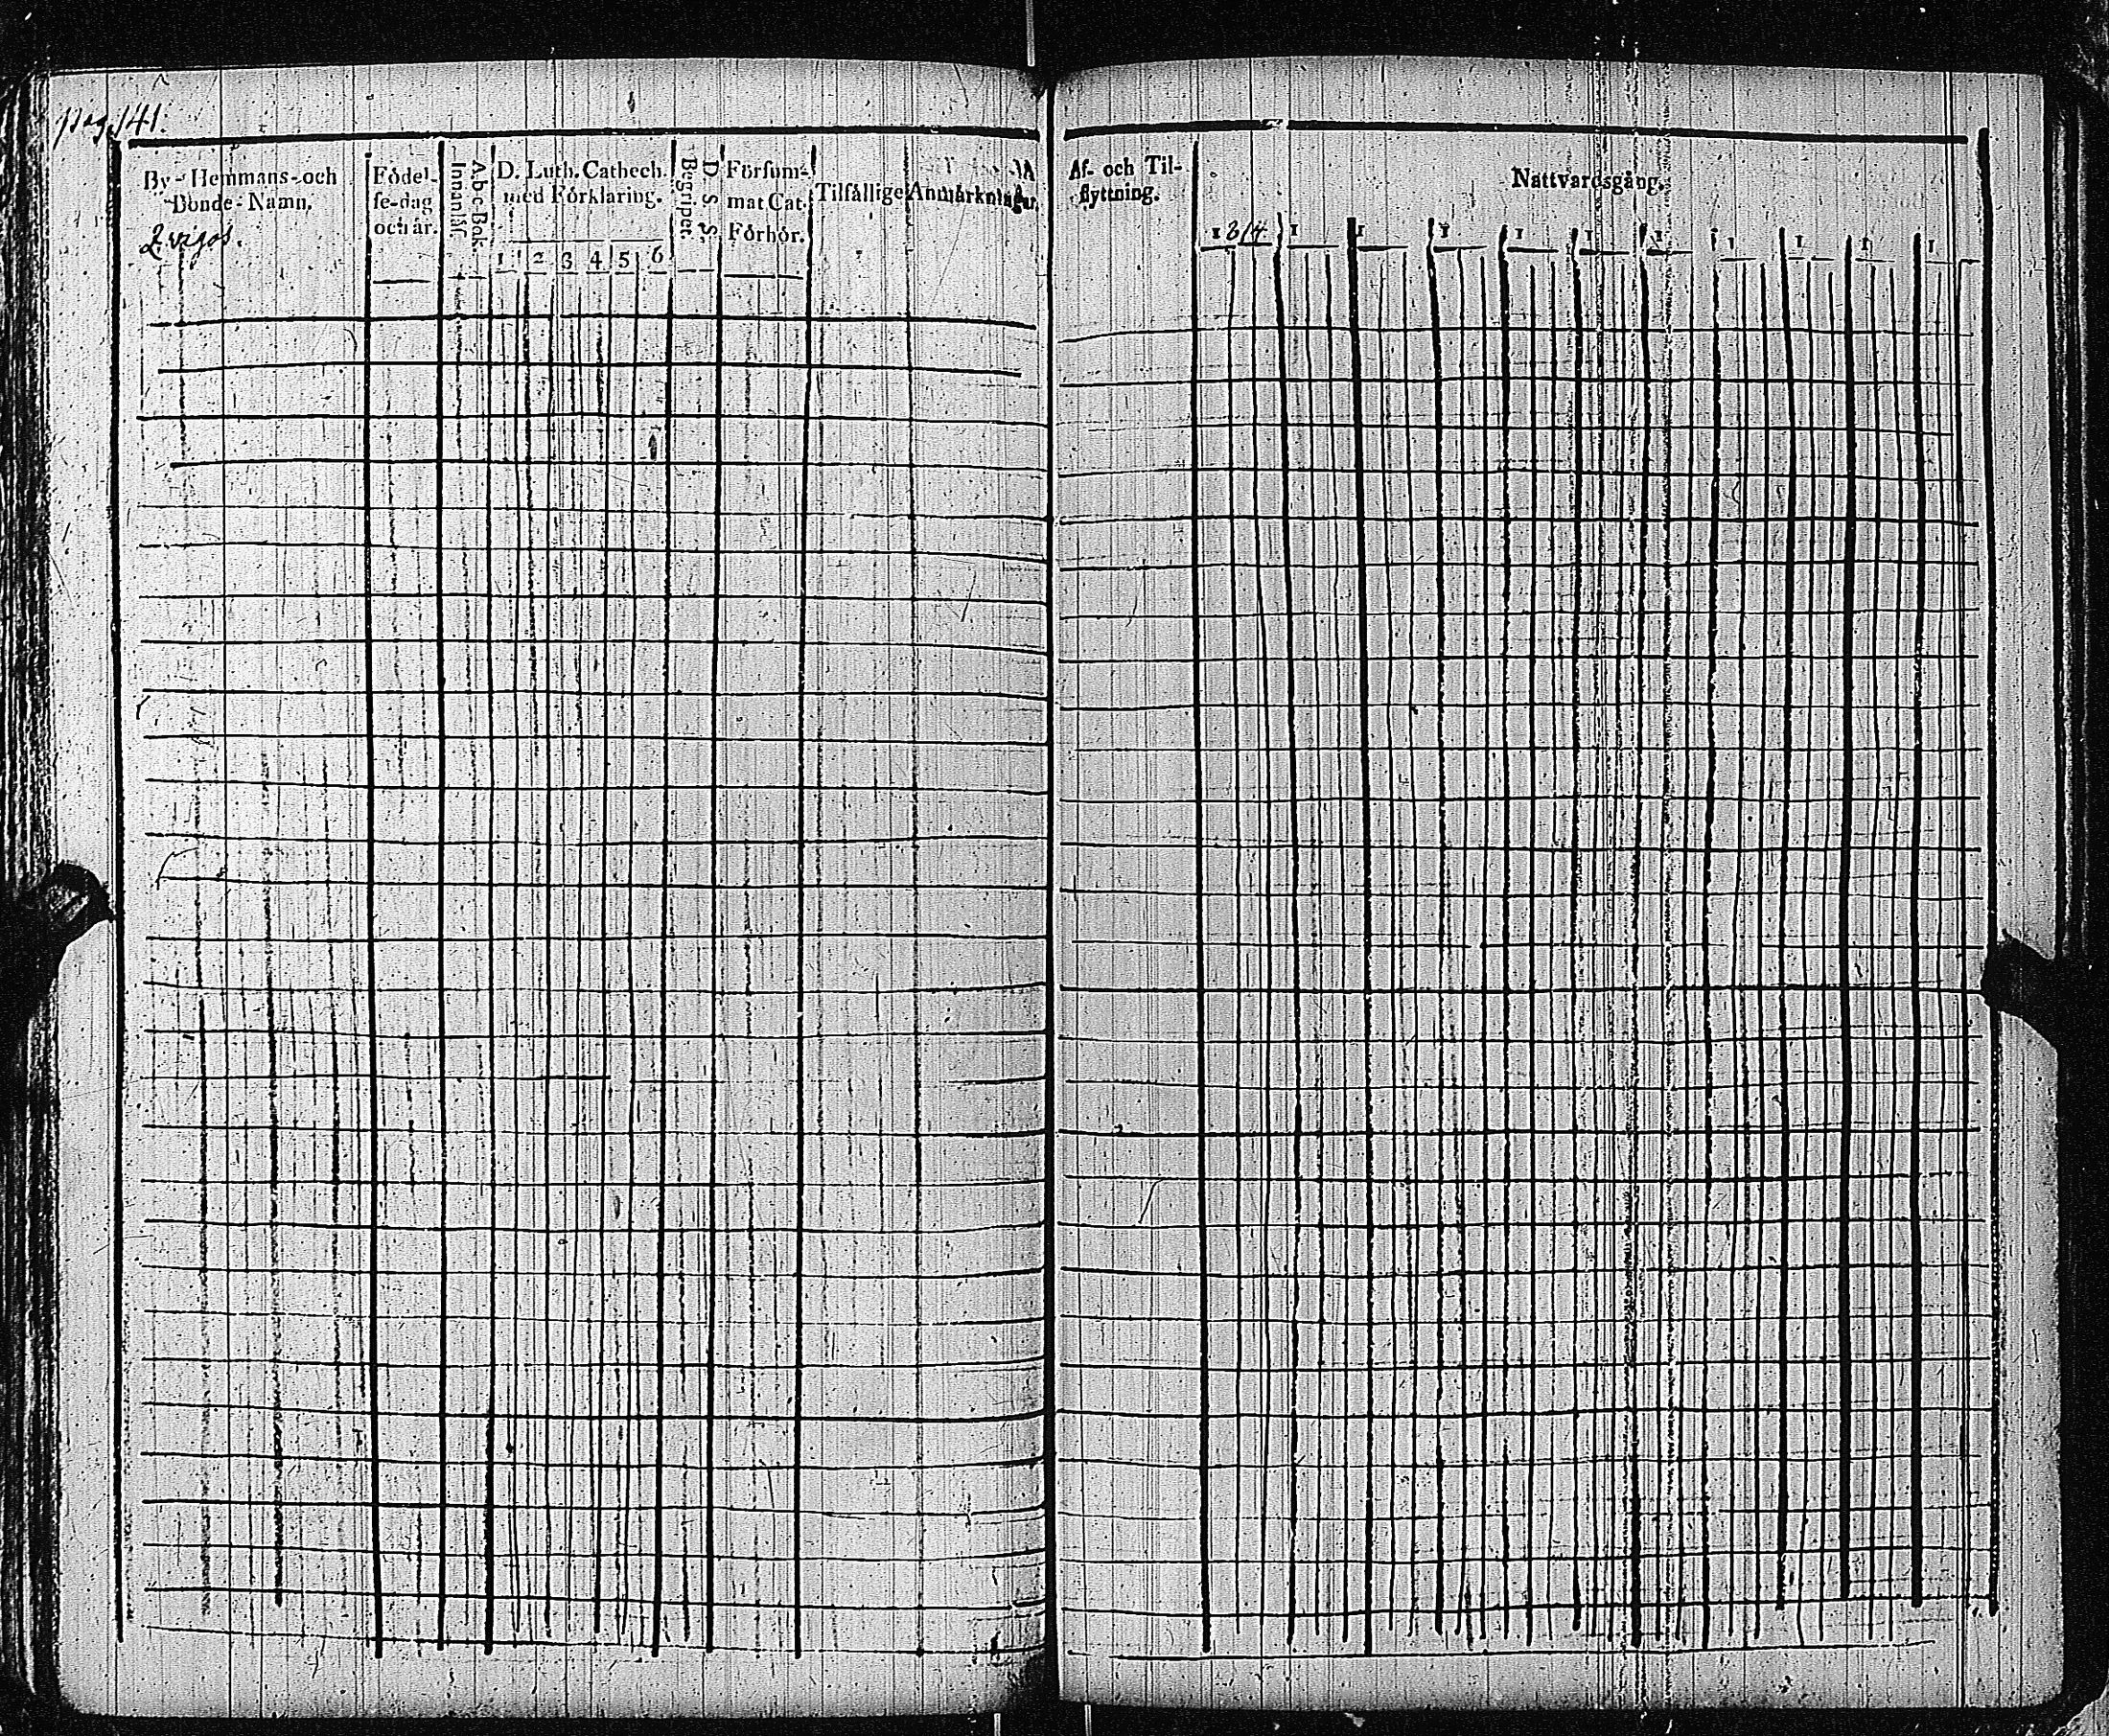 pag. 141.
By- Hemmans- och
Bonde- Namn.
Födel-
se-dag
och år.
A b c Bok
Innanläs.
D. Luth. Cathech.
med Förklaring.
1 2 3 4 5 6
D. S. S.
Begripet.
Försum-
mat Cat.
Förhör.
Tilfällige Anmärkningar.
Af- och Til-
flyttning.
Nattvardsgång.
1814. 1 1 1 1 1 1 1 1 1 1